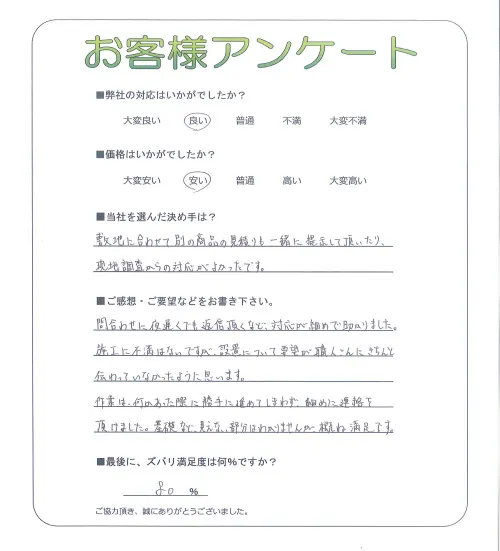 お客様アンケート
■弊社の対応はいかがでしたか？
大変良い 良い 普通 不満 大変不満
■価格はいかがでしたか？
大変安い 安い 普通 高い 大変高い
■当社を選んだ決め手は？
敷地に合わせて別の商品の見積りも一緒に提示して頂いたり、
現地調査からの対応がよかったです。
■ご感想・ご要望などをお書き下さい。
問合わせに夜遅くでも返信頂くなど、対応が細めで助かりました。
施工に不満はないですが、設置について要望が職人さんにきちんと
伝わっていなかったように思います。
作業は、何かあった際に勝手に進めてしまわず、細めに連絡を
頂けました。基礎など、見えない部分はわかりませんが、概ね満足です。
■最後に、ズバリ満足度は何％ですか？
80 ％
ご協力頂き、誠にありがとうございました。